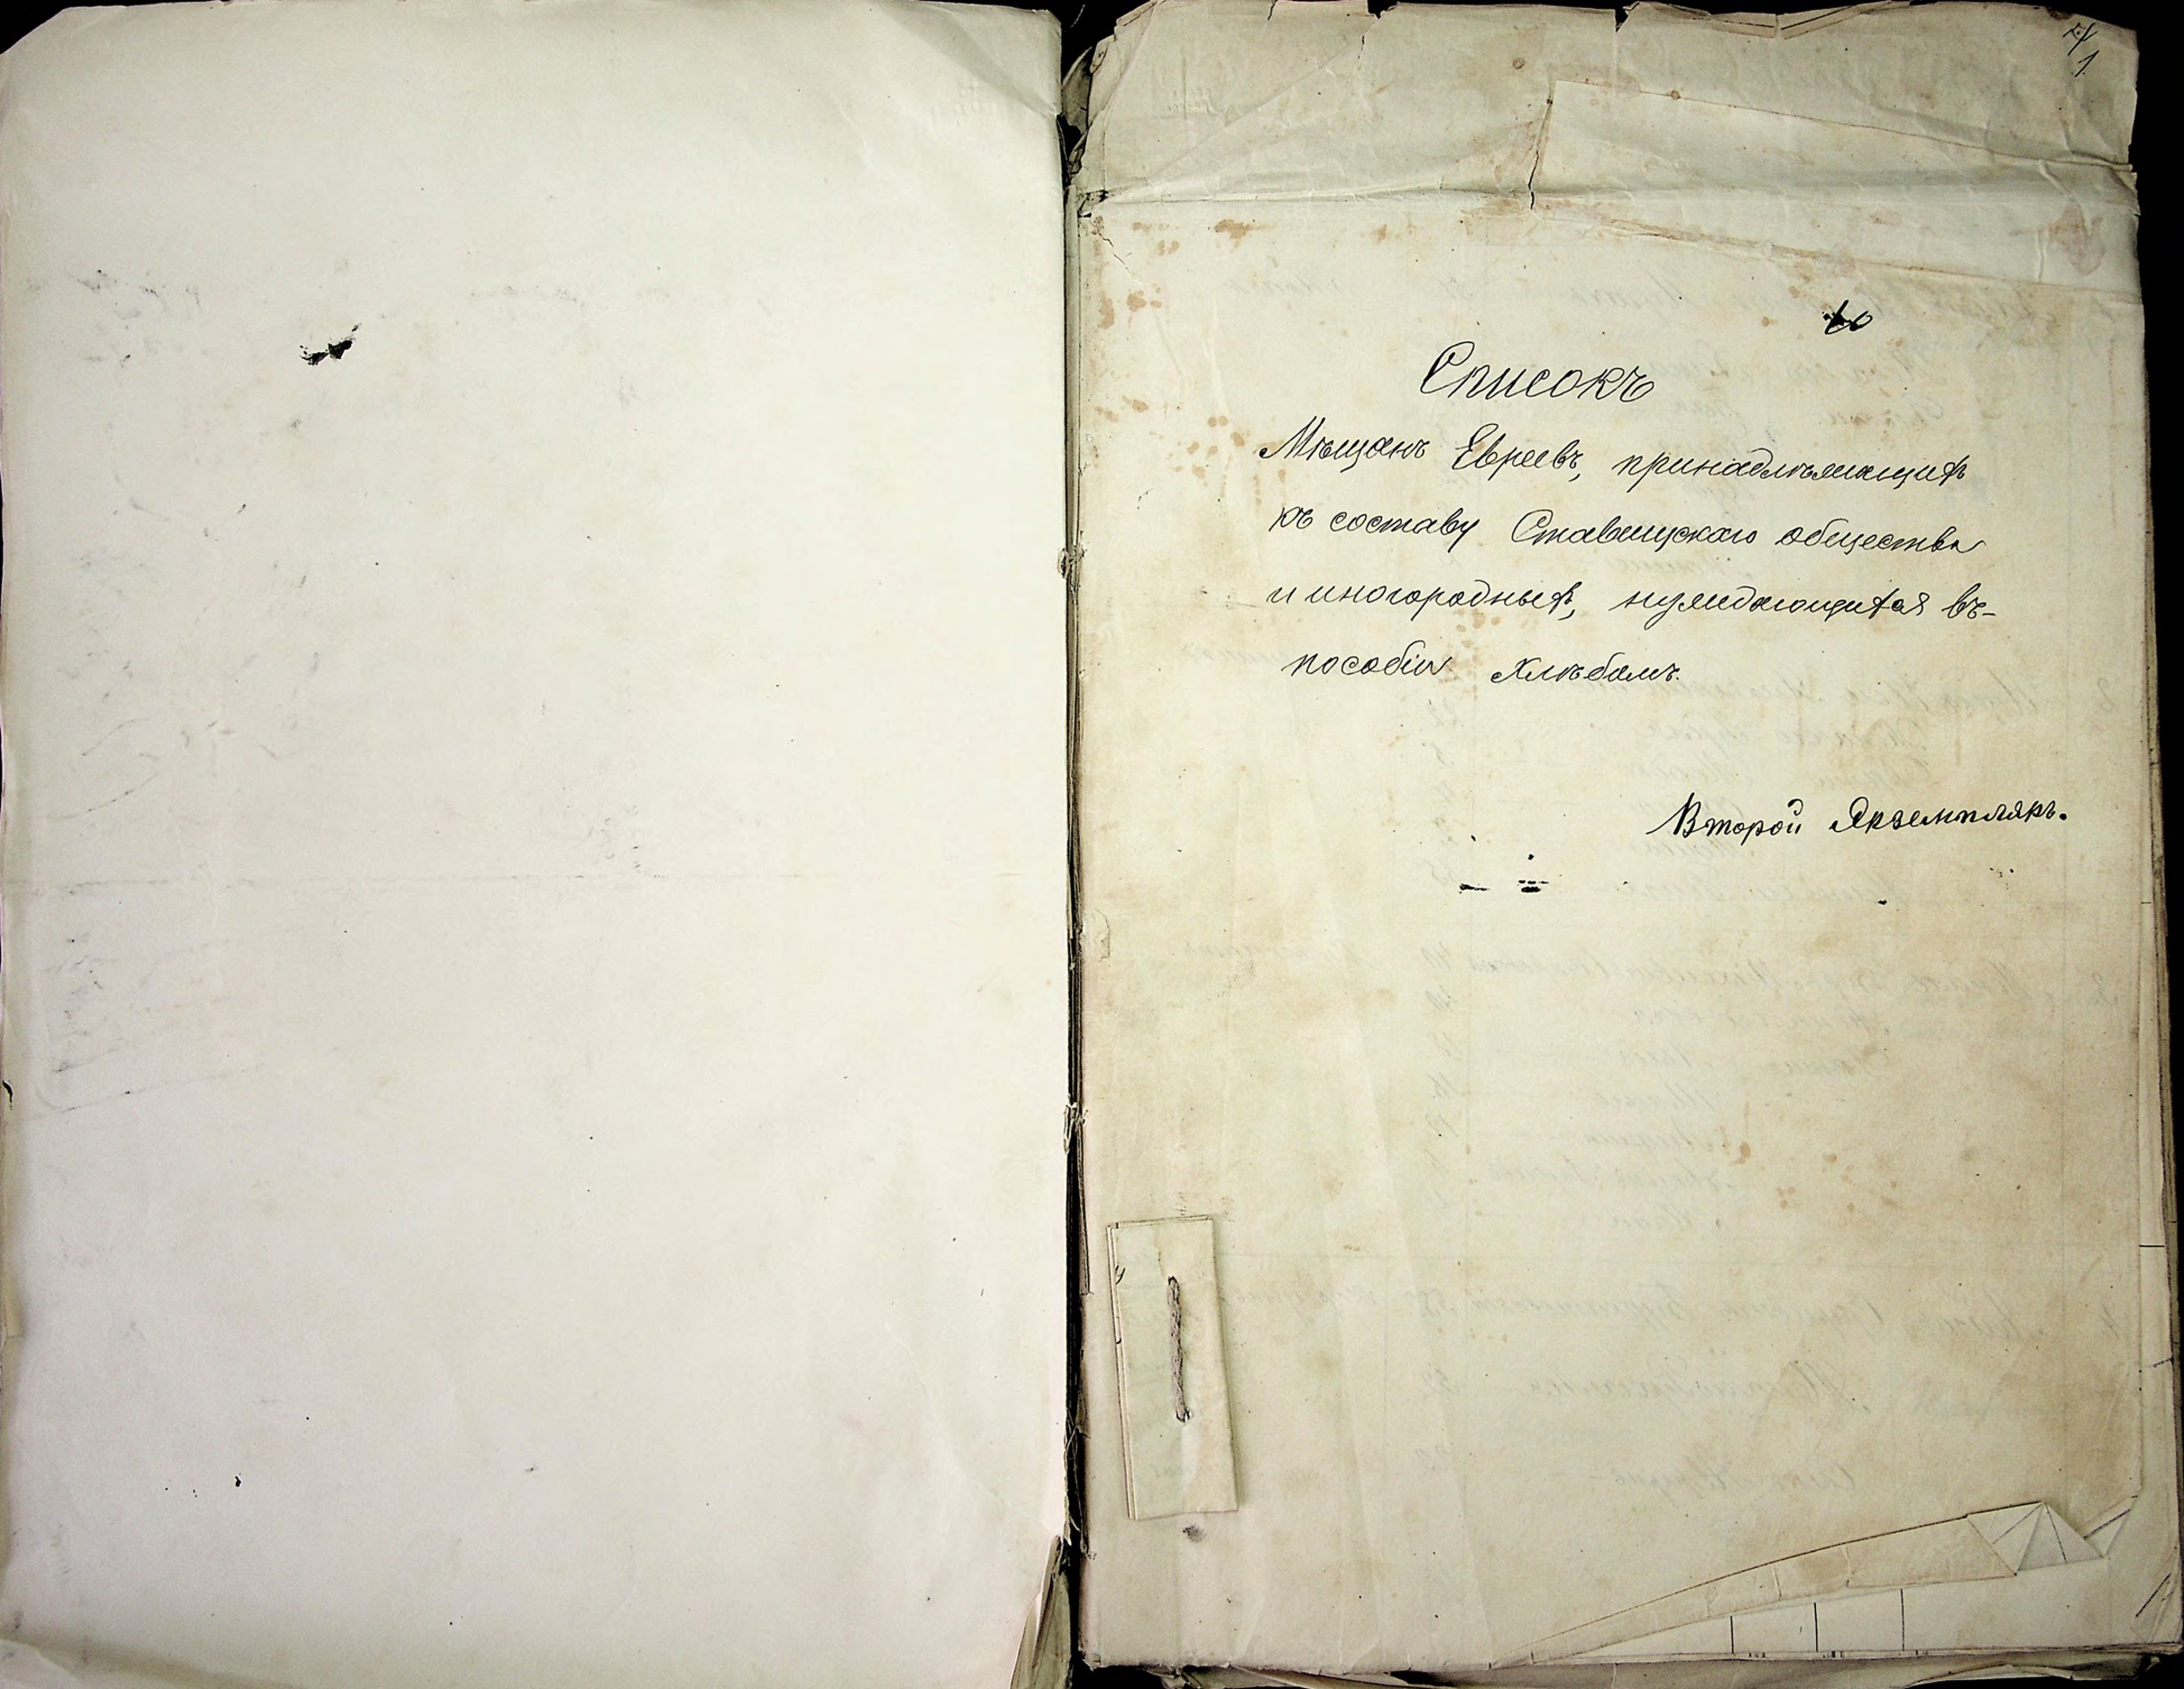 1
Списокъ
Мѣщанъ Евреевъ, принадлѣжащихъ
къ составу Ставищскаго общества
и иногородныхъ, нуждающихся въ-
пособіи хлѣбомъ.
Второй Экземпляръ.